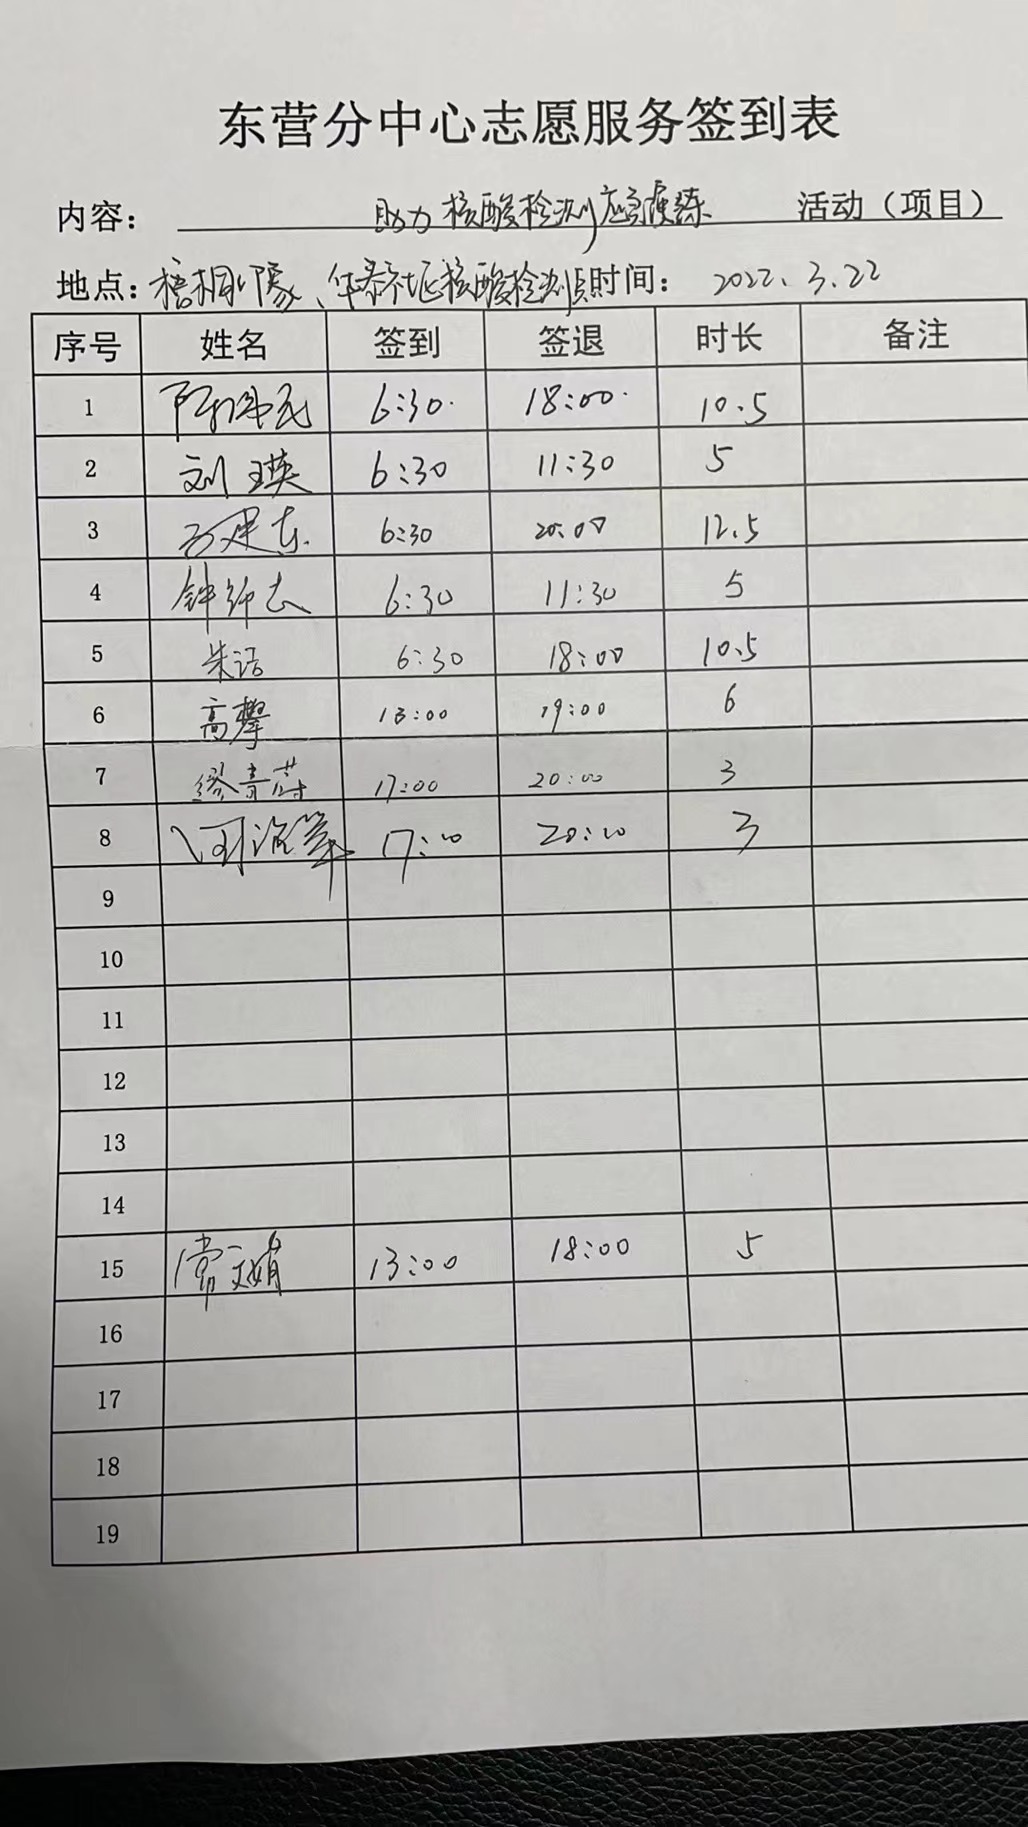 东营分中心志愿服务签到表
内容： 助力核酸检测应急演练 活动（项目）
地点：梧桐 、华泰社区核酸检测点 时间： 2022.3.22
序号 姓名 签到 签退 时长 备注
1 6:30. 18:00. 10.5
2 刘瑛 6:30 11:30 5
3 6:30 20:00 12.5
4 钟 志 6:30 11:30 5
5 朱洁 6:30 18:00 10.5
6 高攀 13:00 19:00 6
7 缪青 17:00 20:00 3
8 17:00 20:00 3
9
10
11
12
13
14
15 常文娟 13:00 18:00 5
16
17
18
19